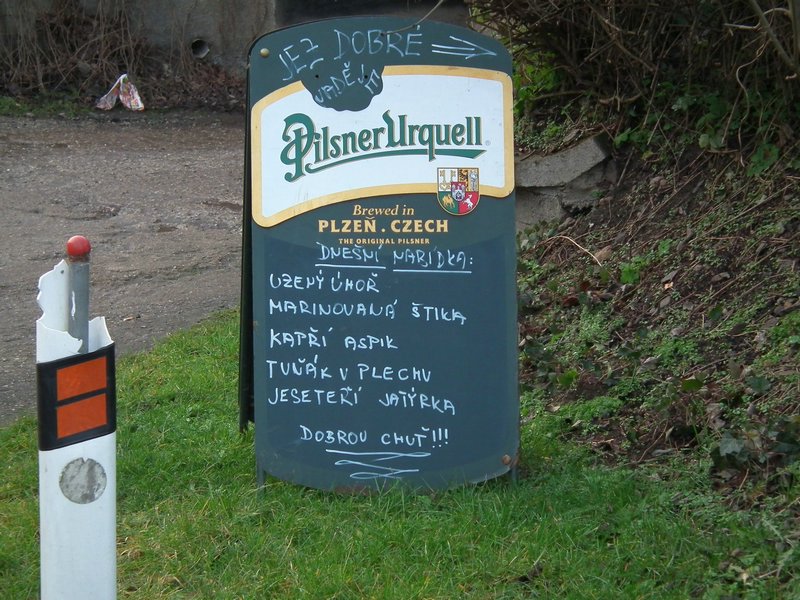 JEZ DOBRÉ
NADĚJE
Pilsner Urquell
Brewed in
PLZEŇ . CZECH
THE ORIGINAL PILSNER
DNEŠNÍ NABÍDKA:
UZENÝ ÚHOŘ
MARINOVANÁ ŠTIKA
KAPŘÍ ASPIK
TUŇÁK V PLECHU
JESETEŘÍ JATÝRKA
DOBROU CHUŤ!!!